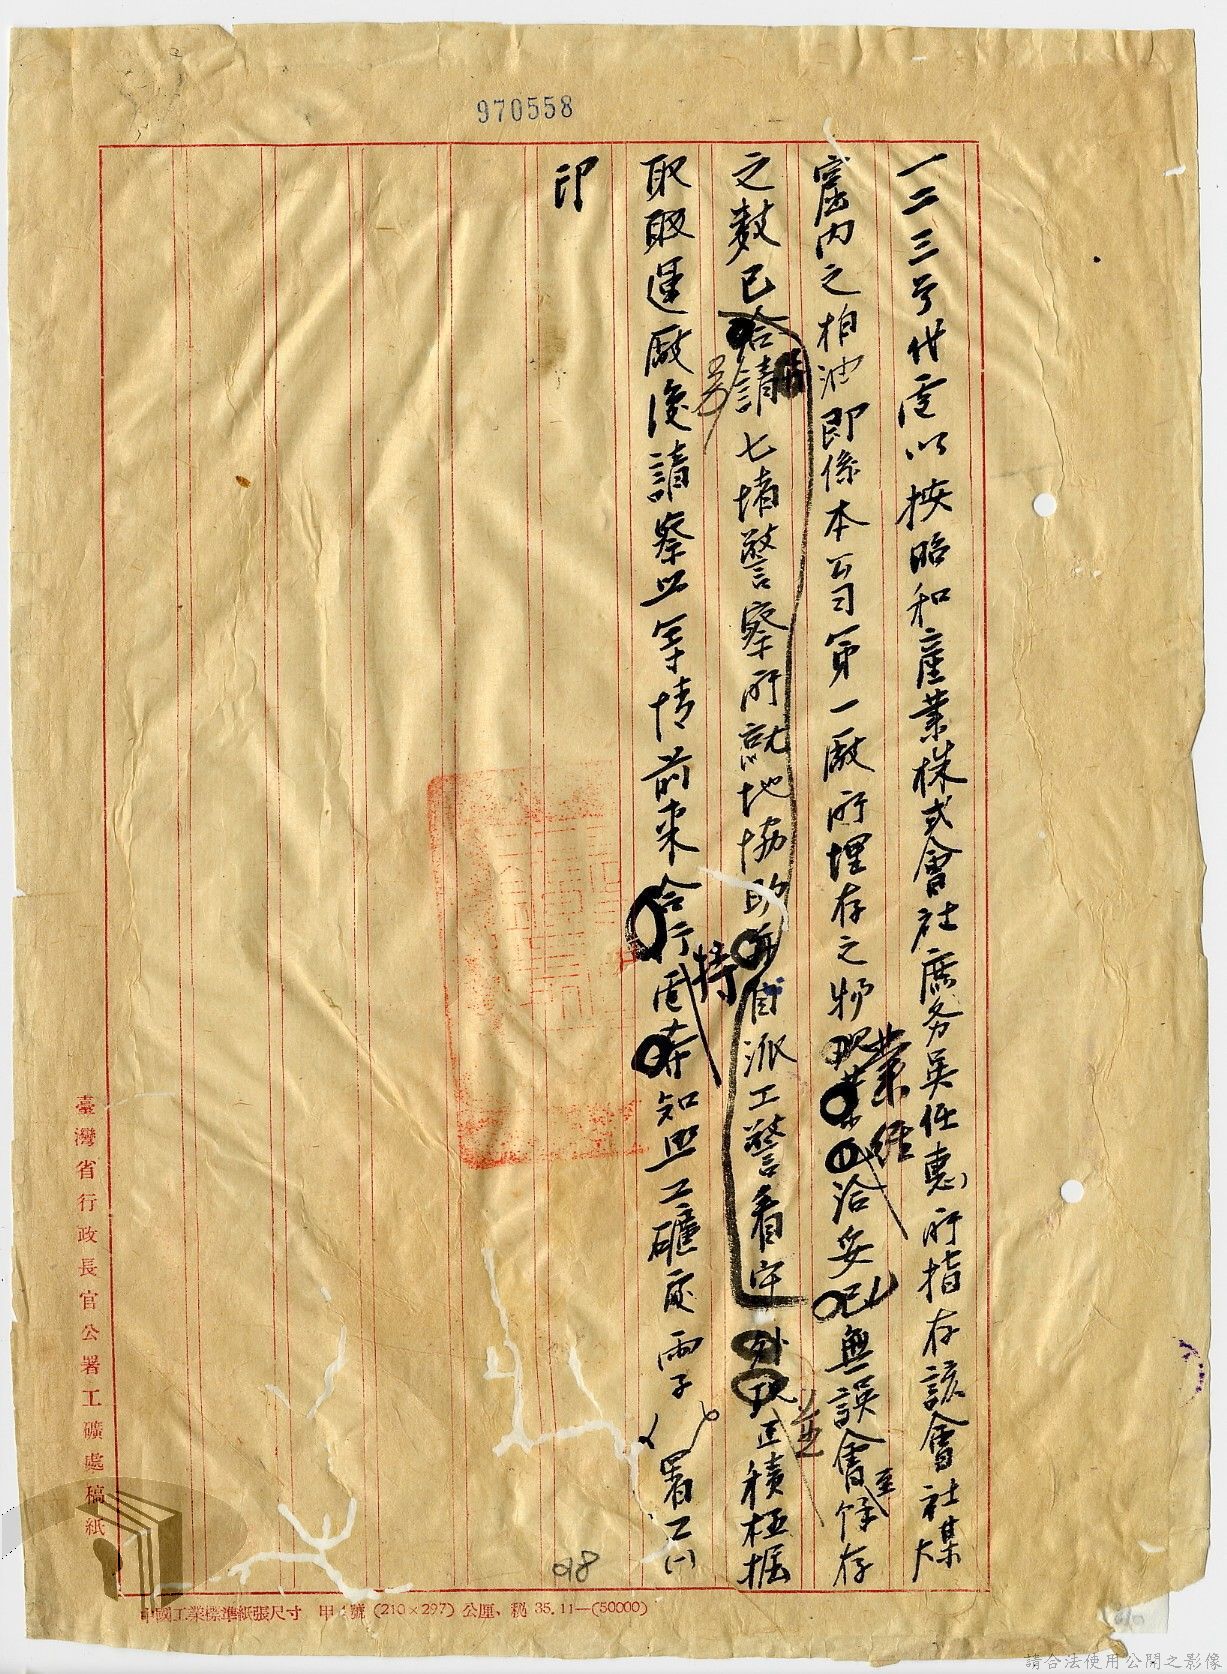 970558
一二三号代电以按昭和產業株式會社庶务吳任惠所指存該會社煤
窟内之柏油即係本公司第一厰所埋存之物業經洽妥無誤會至餘存
之數已請七堵警察所就地協助自派工警看守並正積極掘
取取運厰後請察照等情前來特电知照工礦処雨子 署工
印
臺灣省行政長官公署工礦處稿紙
中國工業標準紙張尺寸 甲4號(210×297)公厘、秘35.11—(50000)
018
請合法使用公開之影像